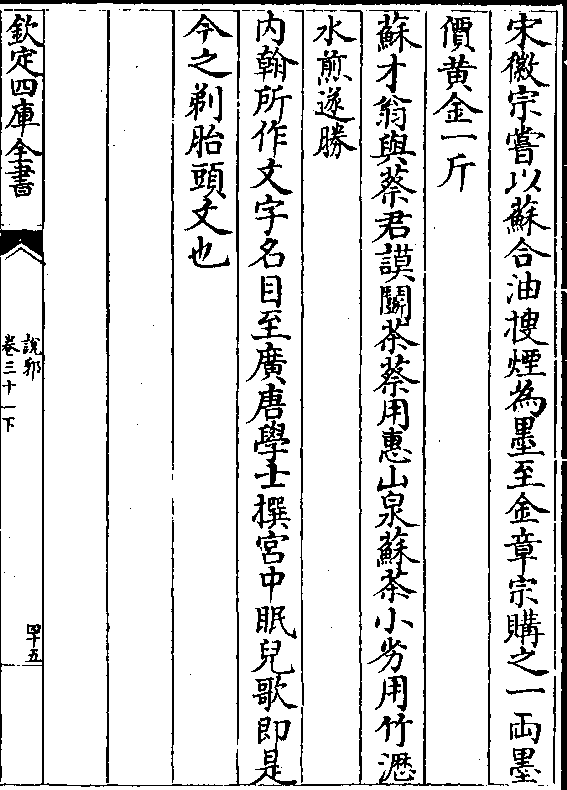 宋徽宗嘗以蘇合油搜煙為墨至金章宗購之一兩墨
價黄金一斤
蘇才翁與蔡君謨鬭茶蔡用惠山泉蘇茶小劣用竹瀝
水煎遂勝
内翰所作文字名目至廣唐學士撰宮中眠兒歌即是
今之剃胎頭文也
欽定四庫全書
說郛
卷三十一下
四十五